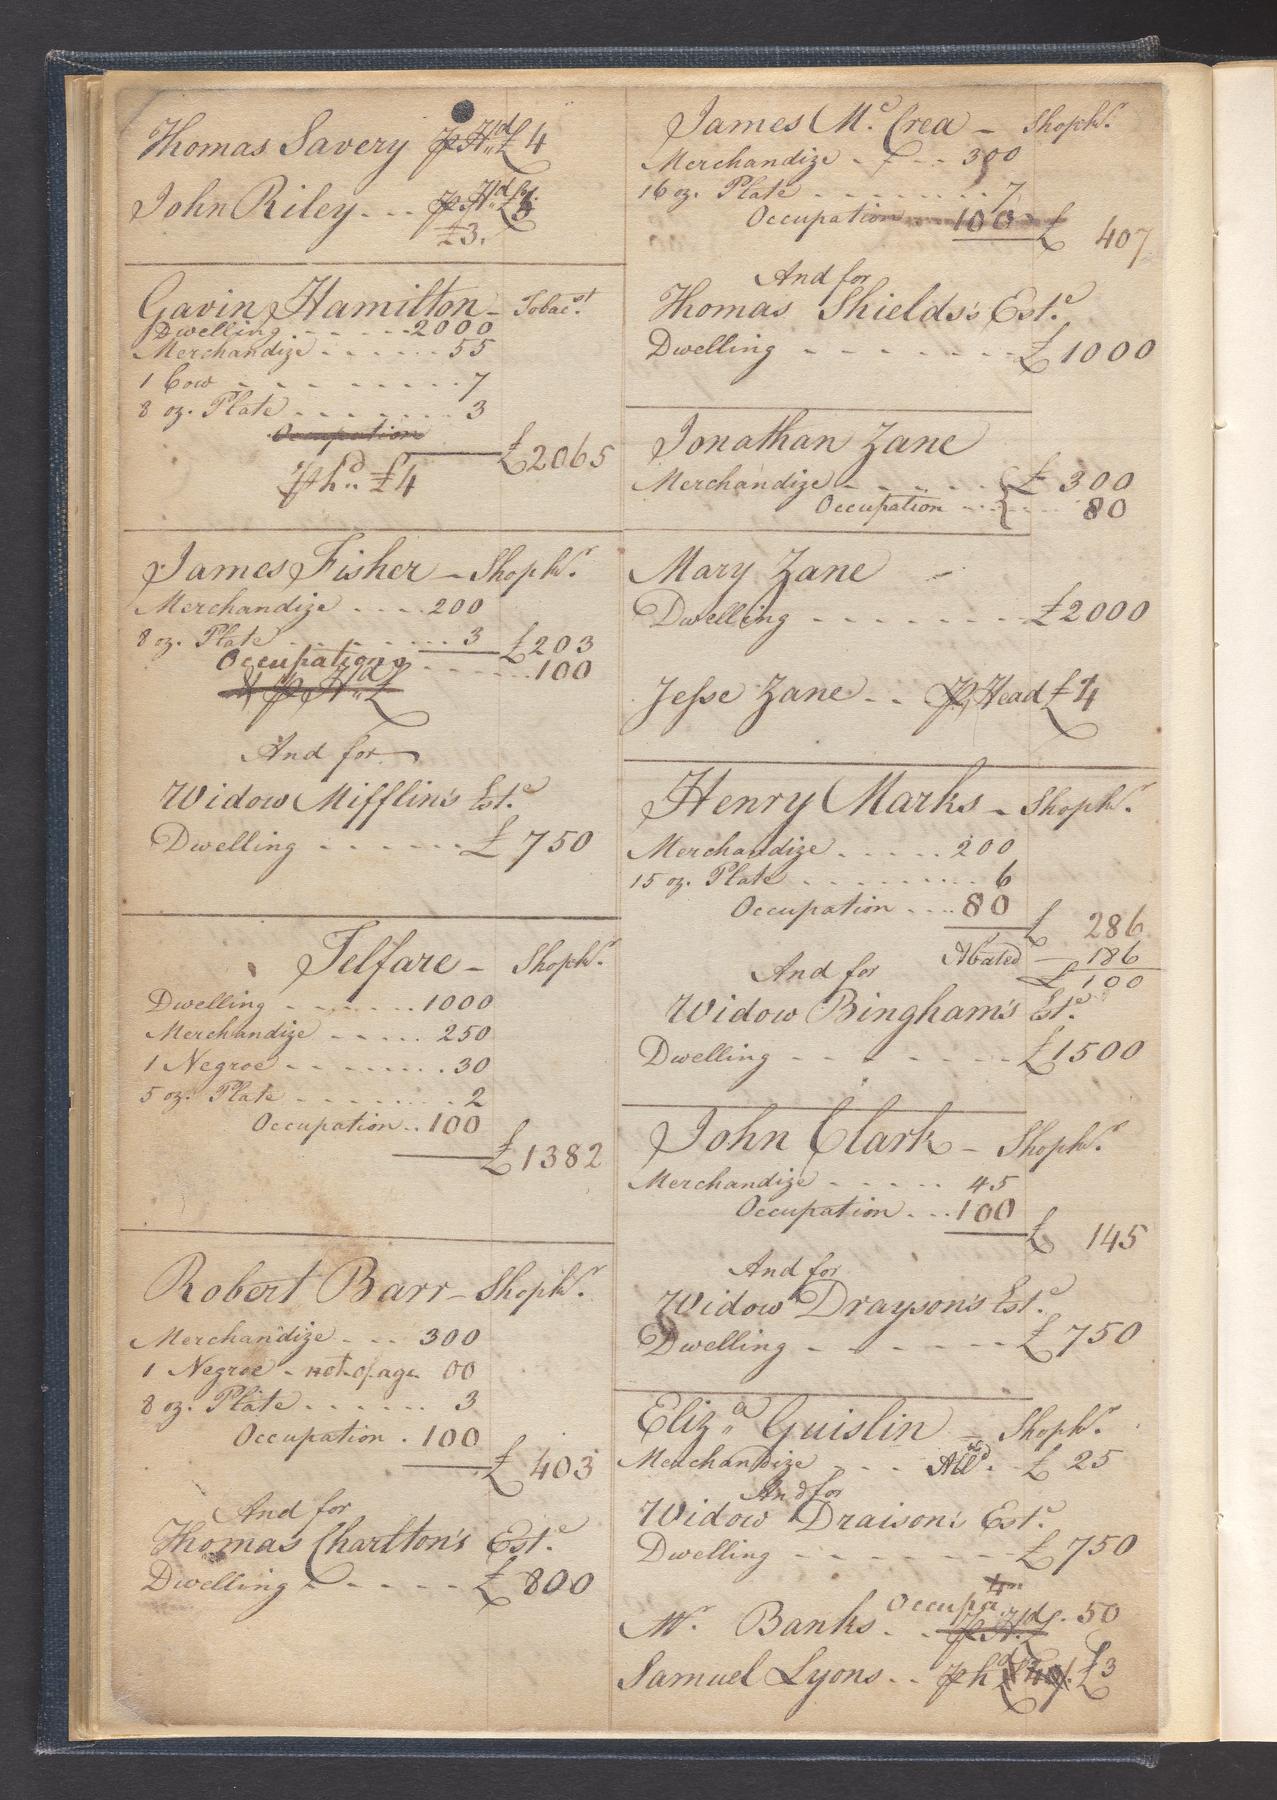 Thomas Savery p Hd £4
John Riley - - - p Hd £
£3.
Gavin Hamilton - Tobac.st
Dwelling - - - - - - 2000
Merchandize - - - - - - 55
1 Cow - - - - - - - - - 7
8 oz. Plate - - - - - - - 3
Occupation
£2065
p hd £4
James Fisher - Shopkr.
Merchandize - - - - 200
8 oz. Plate - - - - - - - 3 £203
Occupation - - - - - - 100
p Hd £
And for
Widow Mifflin's Est.e
Dwelling - - - - - - £750
Telfare - Shopkr.
Dwelling - - - - - - - 1000
Merchandize - - - - - 250
1 Negroe - - - - - - - - 30
5 oz. Plate - - - - - - - - 2
Occupation - - 100
£1382
Robert Barr - Shopkr.
Merchandize - - - 300
1 Negroe - not of age 00
8 oz. Plate - - - - - - 3
Occupation - 100
£403
And for
Thomas Charlton's Est.e
Dwelling - - - - - £800
James Mc. Crea - Shopkr.
Merchandize - - - - 300
16 oz. Plate - - - - - - - - 7
Occupation - - - 100
£ 407
And for
Thomas Shields's Est.e
Dwelling - - - - - - - £1000
Jonathan Zane
Merchandize - - - - - - £ 300
Occupation - - - - - 80
Mary Zane
Dwelling - - - - - - - - £2000
Jesse Zane - - p Head £4
Henry Marks - Shopkr.
Merchandize - - - - - 200
15 oz. Plate - - - - - - - - - 6
Occupation - - - 80
£ 286
Abated - 186
£ 100
And for
Widow Bingham's Est.e
Dwelling - - - - - - - £1500
John Clark - Shopkr.
Merchandize - - - - - 45
Occupation - - - 100
£ 145
And for
Widow Drayson's Est.e
Dwelling - - - - - - - £750
Eliza Guislin - Shopkr.
Merchandize - - - £ 25
And for
Widow Draison's Est.e
Dwelling - - - - - - - £750
Mr. Banks - Occupa.tn p Hd £ - 50
Samuel Lyons - - p hd £3